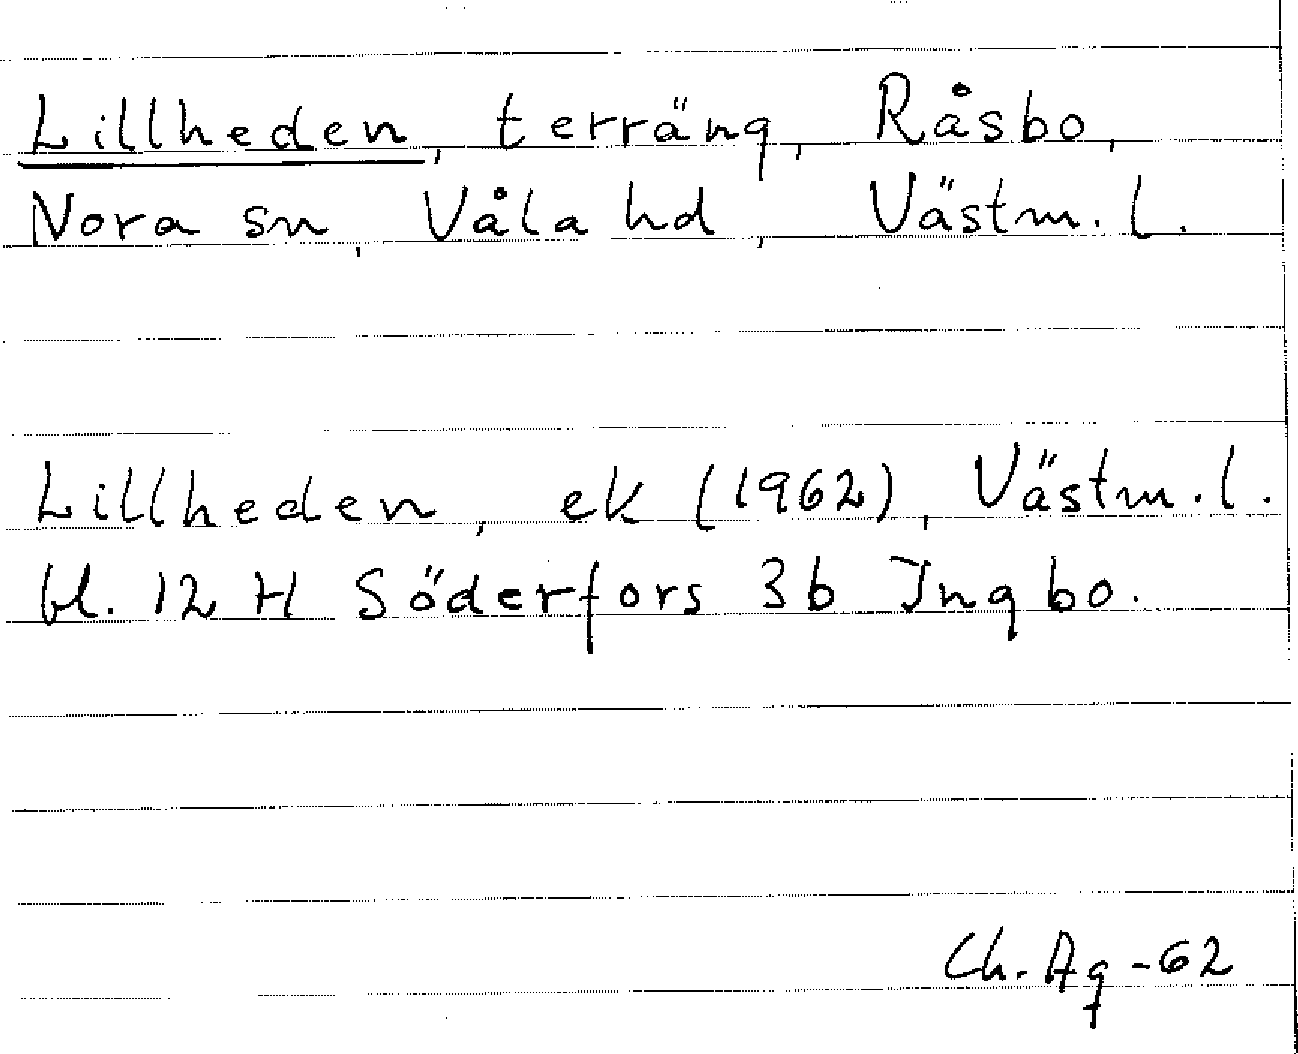 Lillheden, terräng, Råsbo,
Nora sn, Våla hd, Västm. l.
Lillheden, ek (1962), Västm. l.
bl. 12 H Söderfors 3b Ingbo.
Ch. Ag -62